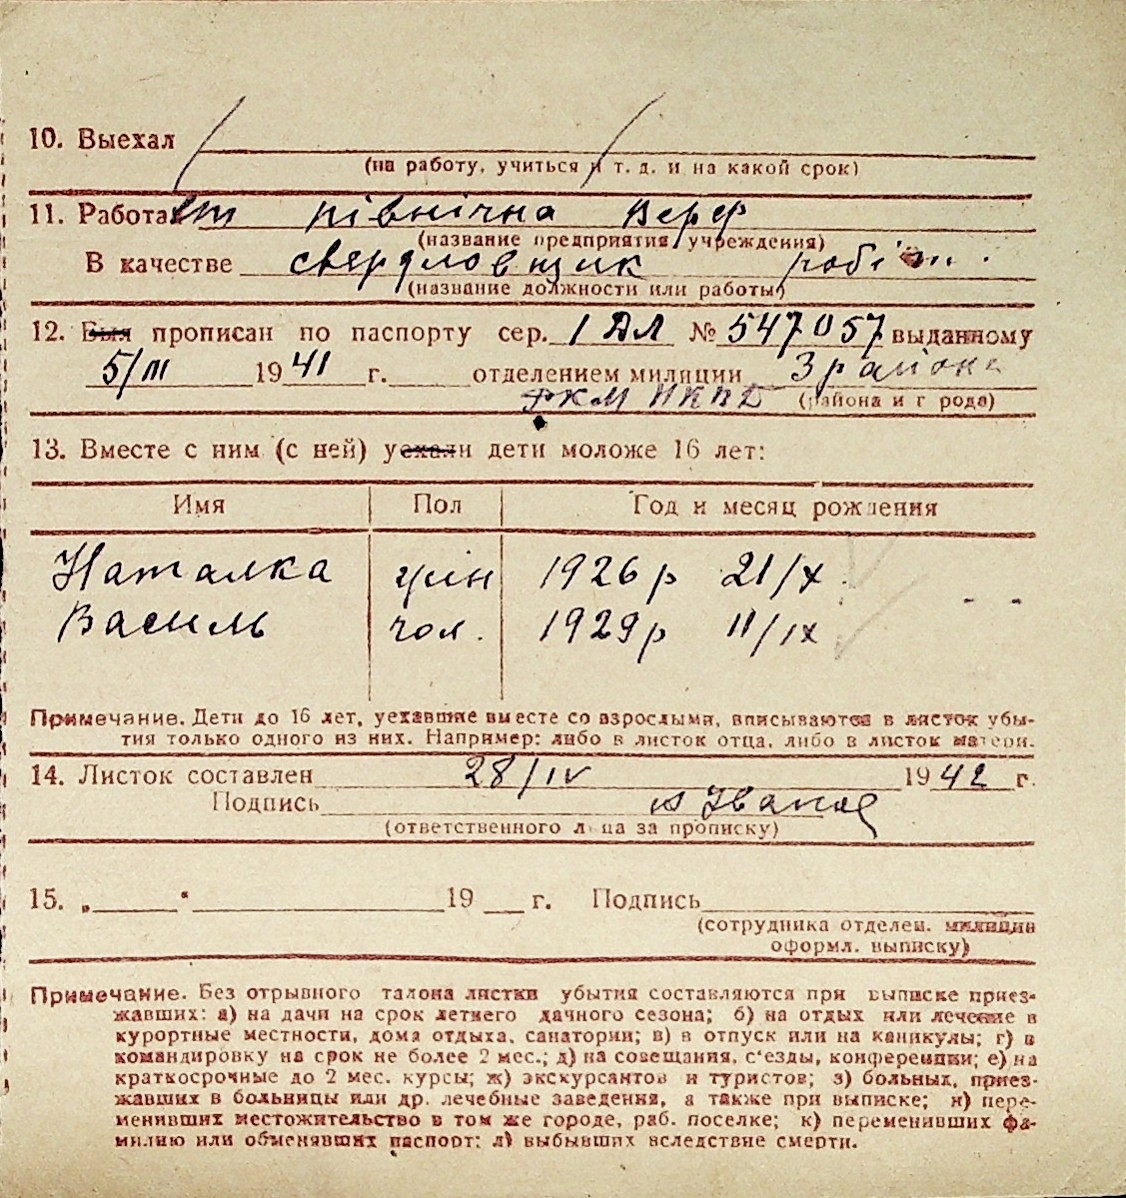 10. Выехал
(на работу, учиться и т. д. и на какой срок)
11. Работает північна верф
(название предприятия учреждения)
В качестве свердловщик робіт.
(название должности или работы)
12. Был прописан по паспорту сер. І ДЛ № 547057 выданному
5/III 1941 г. отделением милиции 3 района
РКМ НКВД (района и г рода)
13. Вместе с ним (с ней) уехали дети моложе 16 лет:
Имя Пол Год и месяц рождения
Наталка жін 1926 р 21/X
Василь чол. 1929 р 11/IX
Примечание. Дети до 16 лет, уехавшие вместе со взрослыми, вписываются в листок убы-
тия только одного из них. Например: либо в листок отца, либо в листок матери.
14. Листок составлен 28/IV 1942 г.
Подпись Іванов
(ответственного лица за прописку)
15. „ “ 19 г. Подпись
(сотрудника отделен. милиции
оформл. выписку)
Примечание. Без отрывного талона листки убытия составляются при выписке приез-
жавших: а) на дачи на срок летнего дачного сезона; б) на отдых или лечение в
курортные местности, дома отдыха, санатории; в) в отпуск или на каникулы; г) в
командировку на срок не более 2 мес.; д) на совещания, с'езды, конференции; е) на
краткосрочные до 2 мес. курсы; ж) экскурсантов и туристов; з) больных, приез-
жавших в больницы или др. лечебные заведения, а также при выписке; и) пере-
менивших местожительство в том же городе, раб. поселке; к) переменивших фа-
милию или обменявших паспорт; л) выбывших вследствие смерти.